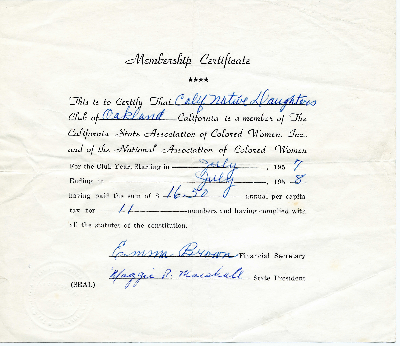 Membership Certificate
★★★★
This is to Certify That Calif Native Daughters
Club of Oakland California is a member of The
California State Association of Colored Women, Inc.,
and of the National Association of Colored Women
For the Club Year, Starting in July , 1957
Ending in July , 1958
having paid the sum of $ 16.50 annual per capita
tax for 11 members and having complied with
all the statutes of the constitution.
Emma Brown Financial Secretary
Maggie D. Marshall State President
(SEAL)